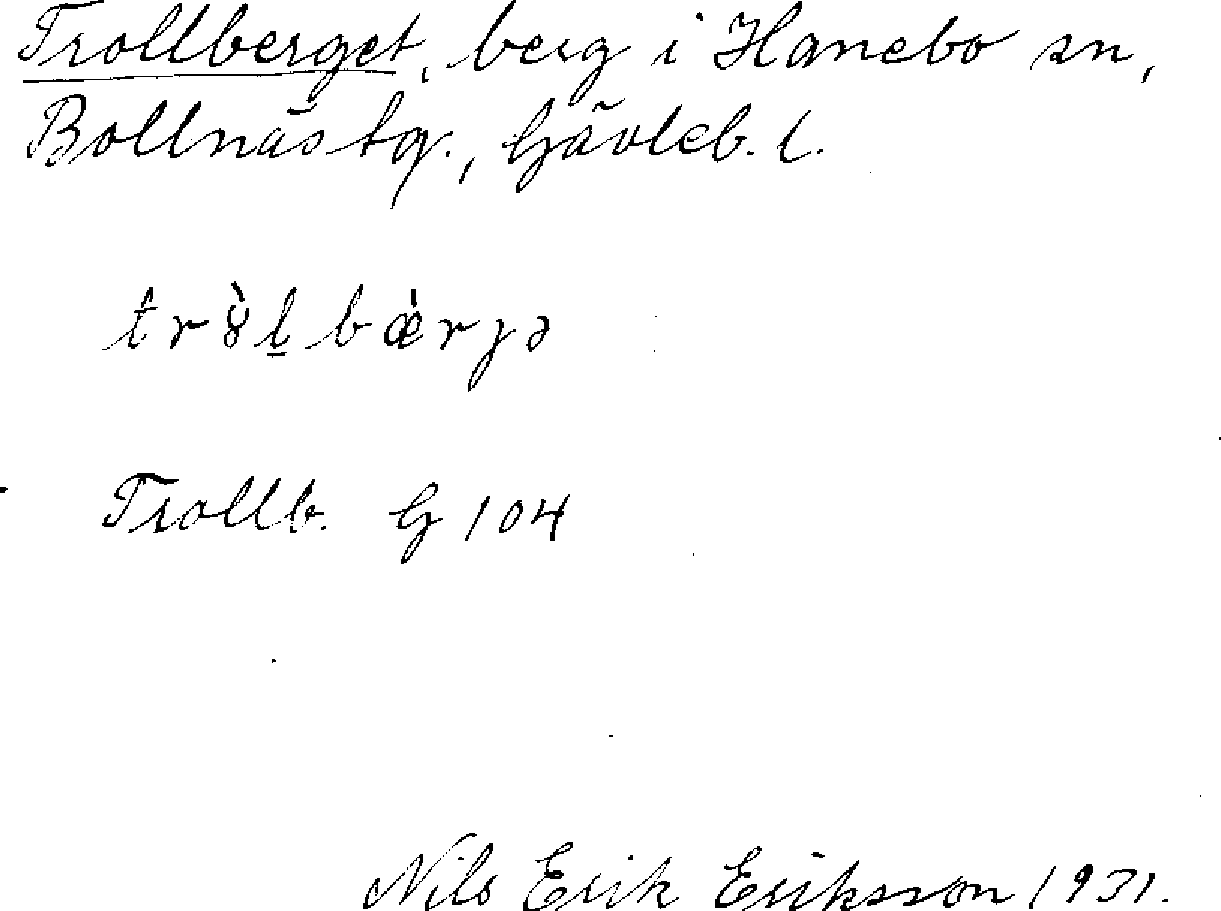 Trollberget, berg i Hanebo sn,
Bollnäs tg., Gävleb. l.
trȣ̀l̲bæ̀rɟə
Trollb. G 104
Nils Erik Eriksson 1931.